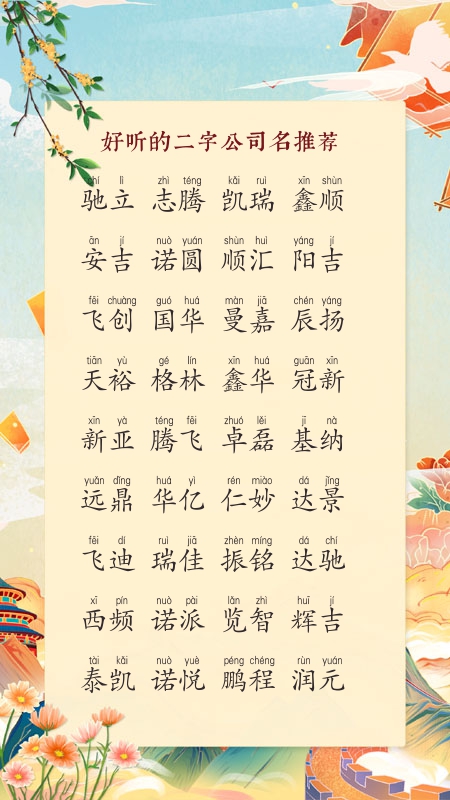 好听的二字公司名推荐
chí lì zhì téng kǎi ruì xīn shùn
驰立 志腾 凯瑞 鑫顺
ān jí nuò yuán shùn huì yáng jí
安吉 诺圆 顺汇 阳吉
fēi chuàng guó huá màn jiā chén yáng
飞创 国华 曼嘉 辰扬
tiān yù gé lín xīn huá guān xīn
天裕 格林 鑫华 冠新
xīn yà téng fēi zhuó lěi jī nà
新亚 腾飞 卓磊 基纳
yuǎn dǐng huá yì rén miào dá jǐng
远鼎 华亿 仁妙 达景
fēi dí ruì jiā zhèn míng dá chí
飞迪 瑞佳 振铭 达驰
xī pín nuò pài lǎn zhì huī jí
西频 诺派 览智 辉吉
tài kǎi nuò yuè péng chéng rùn yuán
泰凯 诺悦 鹏程 润元